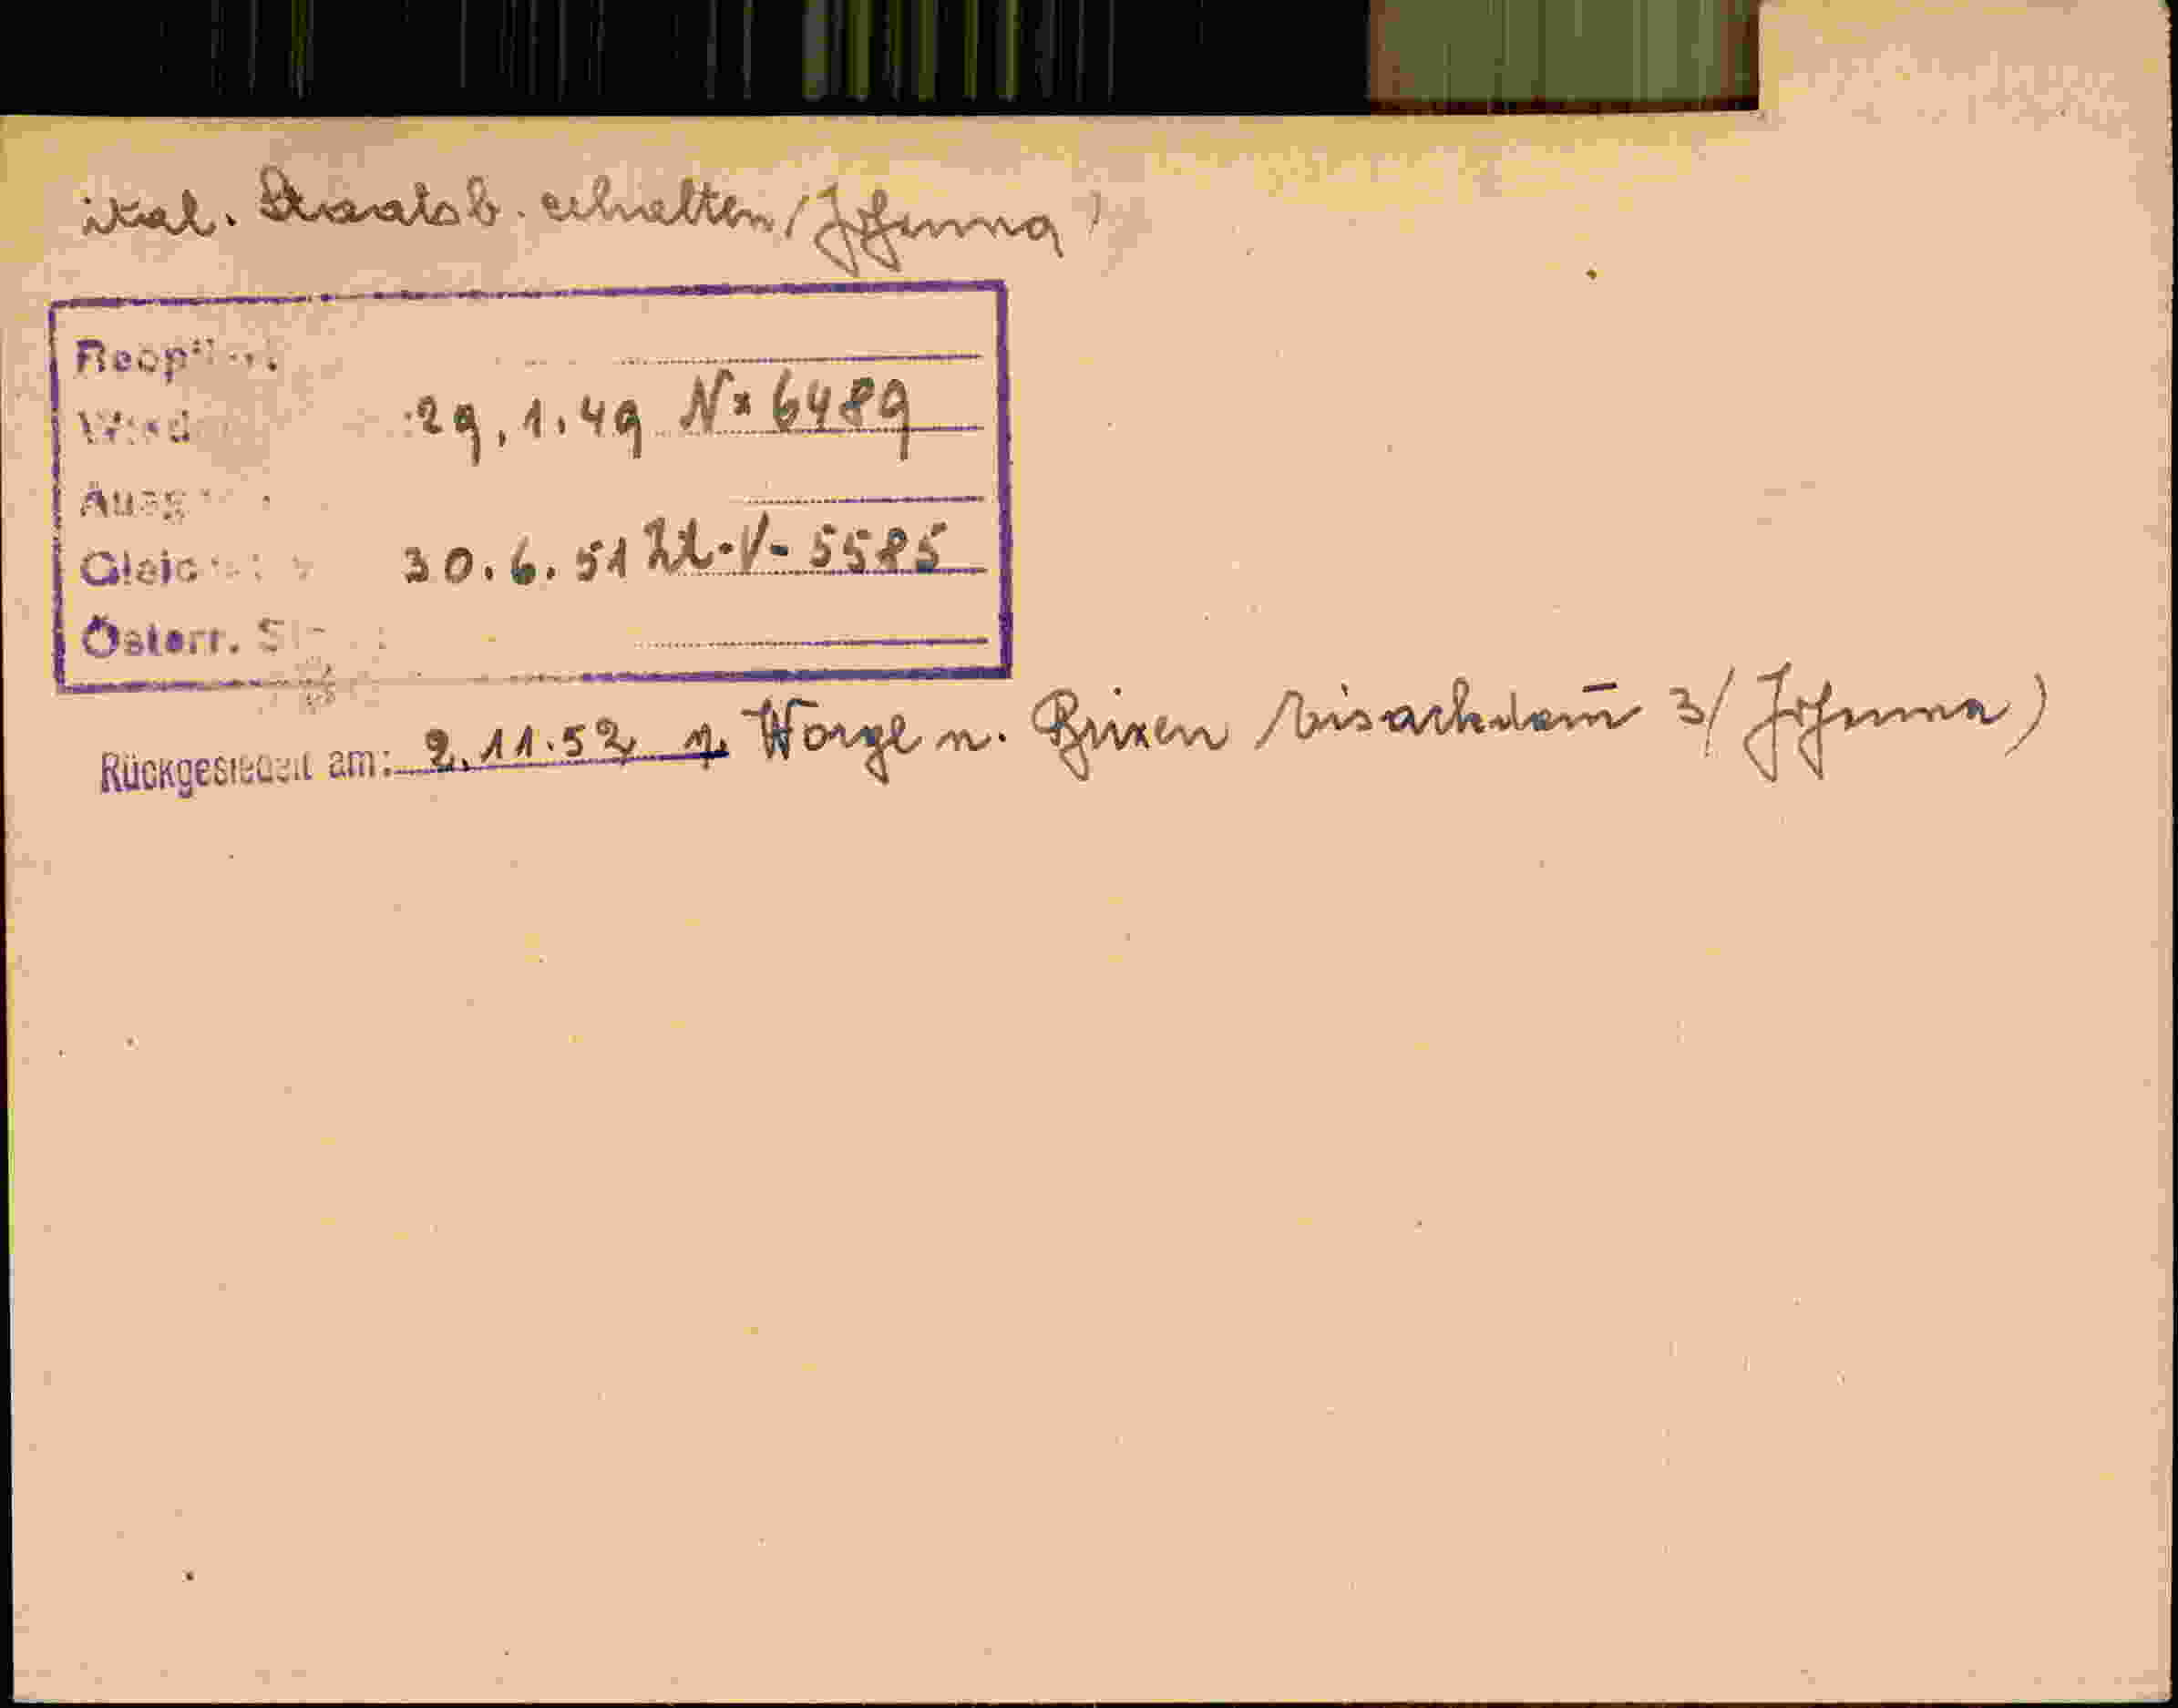 ital. Staatsb. erhalten (Johanna)
Reopt
29.1.49 N. 6489
30.6.51 Zl-V-5585
Österr. St
Rückgesiedelt am: 2.11.52 v. Wörgl n. Brixen Eisackdamm 3 (Johanna)